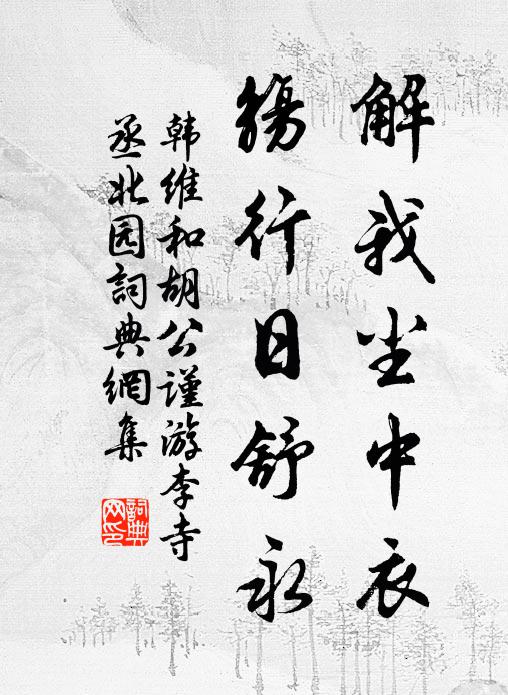 解我尘中衣
觴行日舒永
韩维和胡公谨游李寺
丞北园詞典網集
詞典
网印